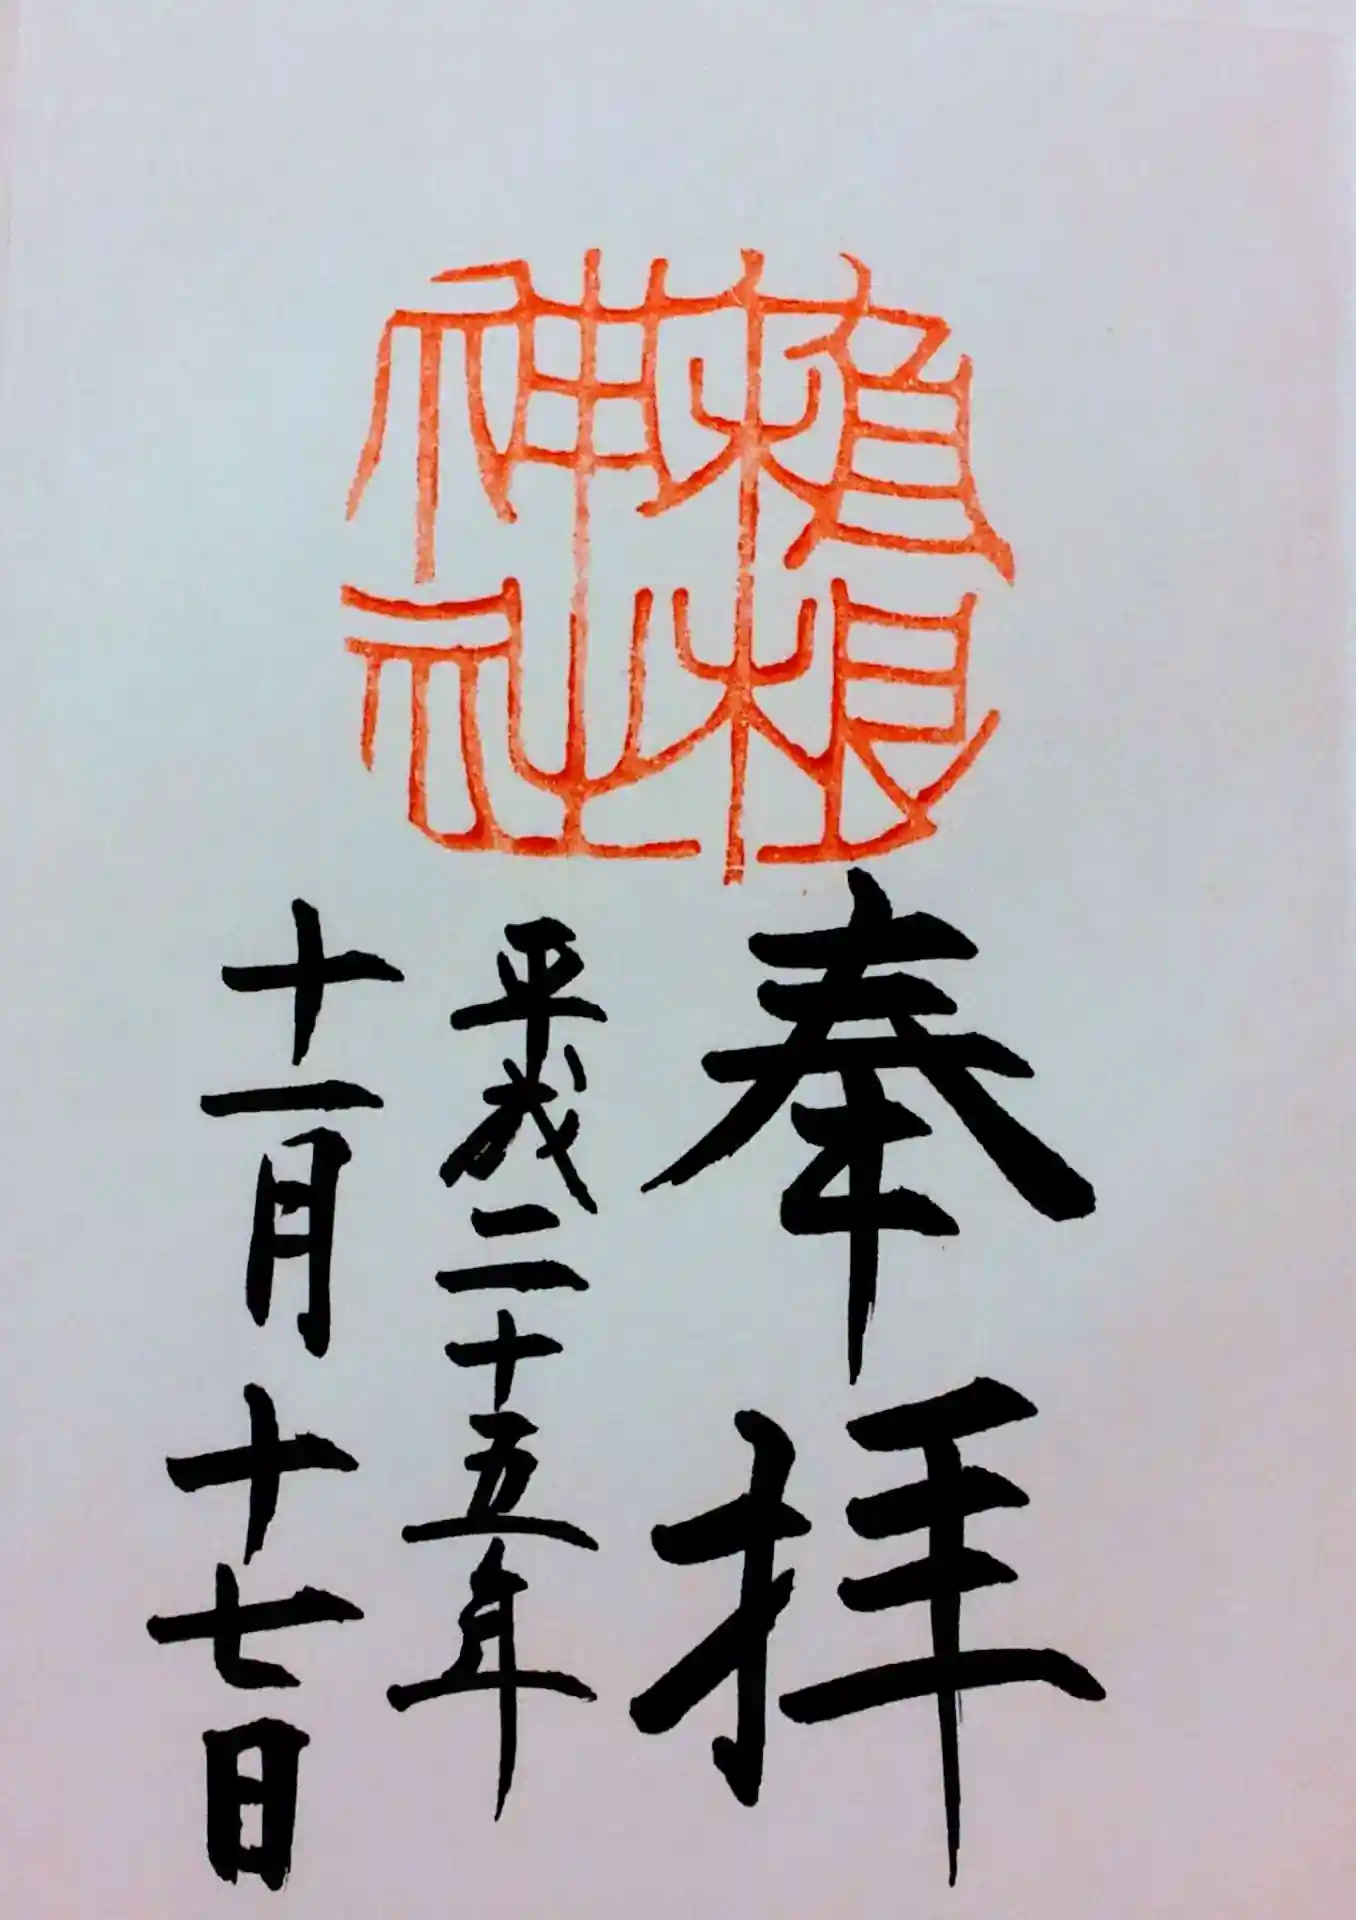 植根
神社
奉拝
平成二十五年
十一月十七日